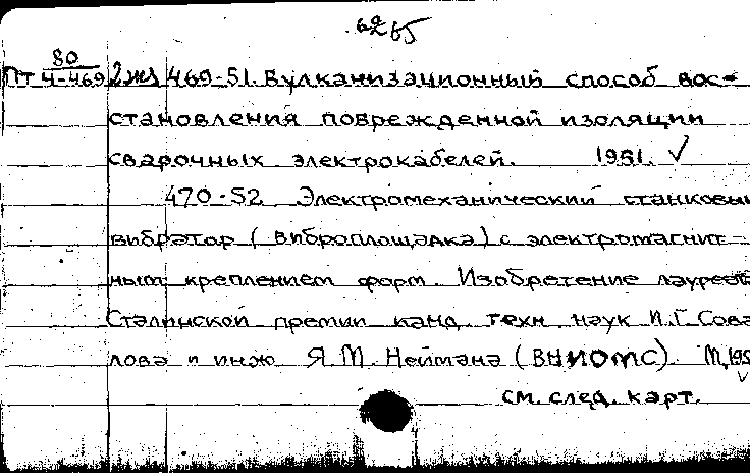 6265
80
Пт 4-469 2жд 469-51. Вулканизационный способ вос-
становления поврежденной изоляции
сварочных электрокабелей. 1951. √
470-52 Электромеханический станковый
вибратор (виброплощадка) с электромагнит-
ным креплением форм. Изобретение лауреат
Сталинской премии канд. техн. наук И.Г. Сова
лова и инж Я.М. Неймана (ВНИОМС). М, 195
√
см. след. карт.